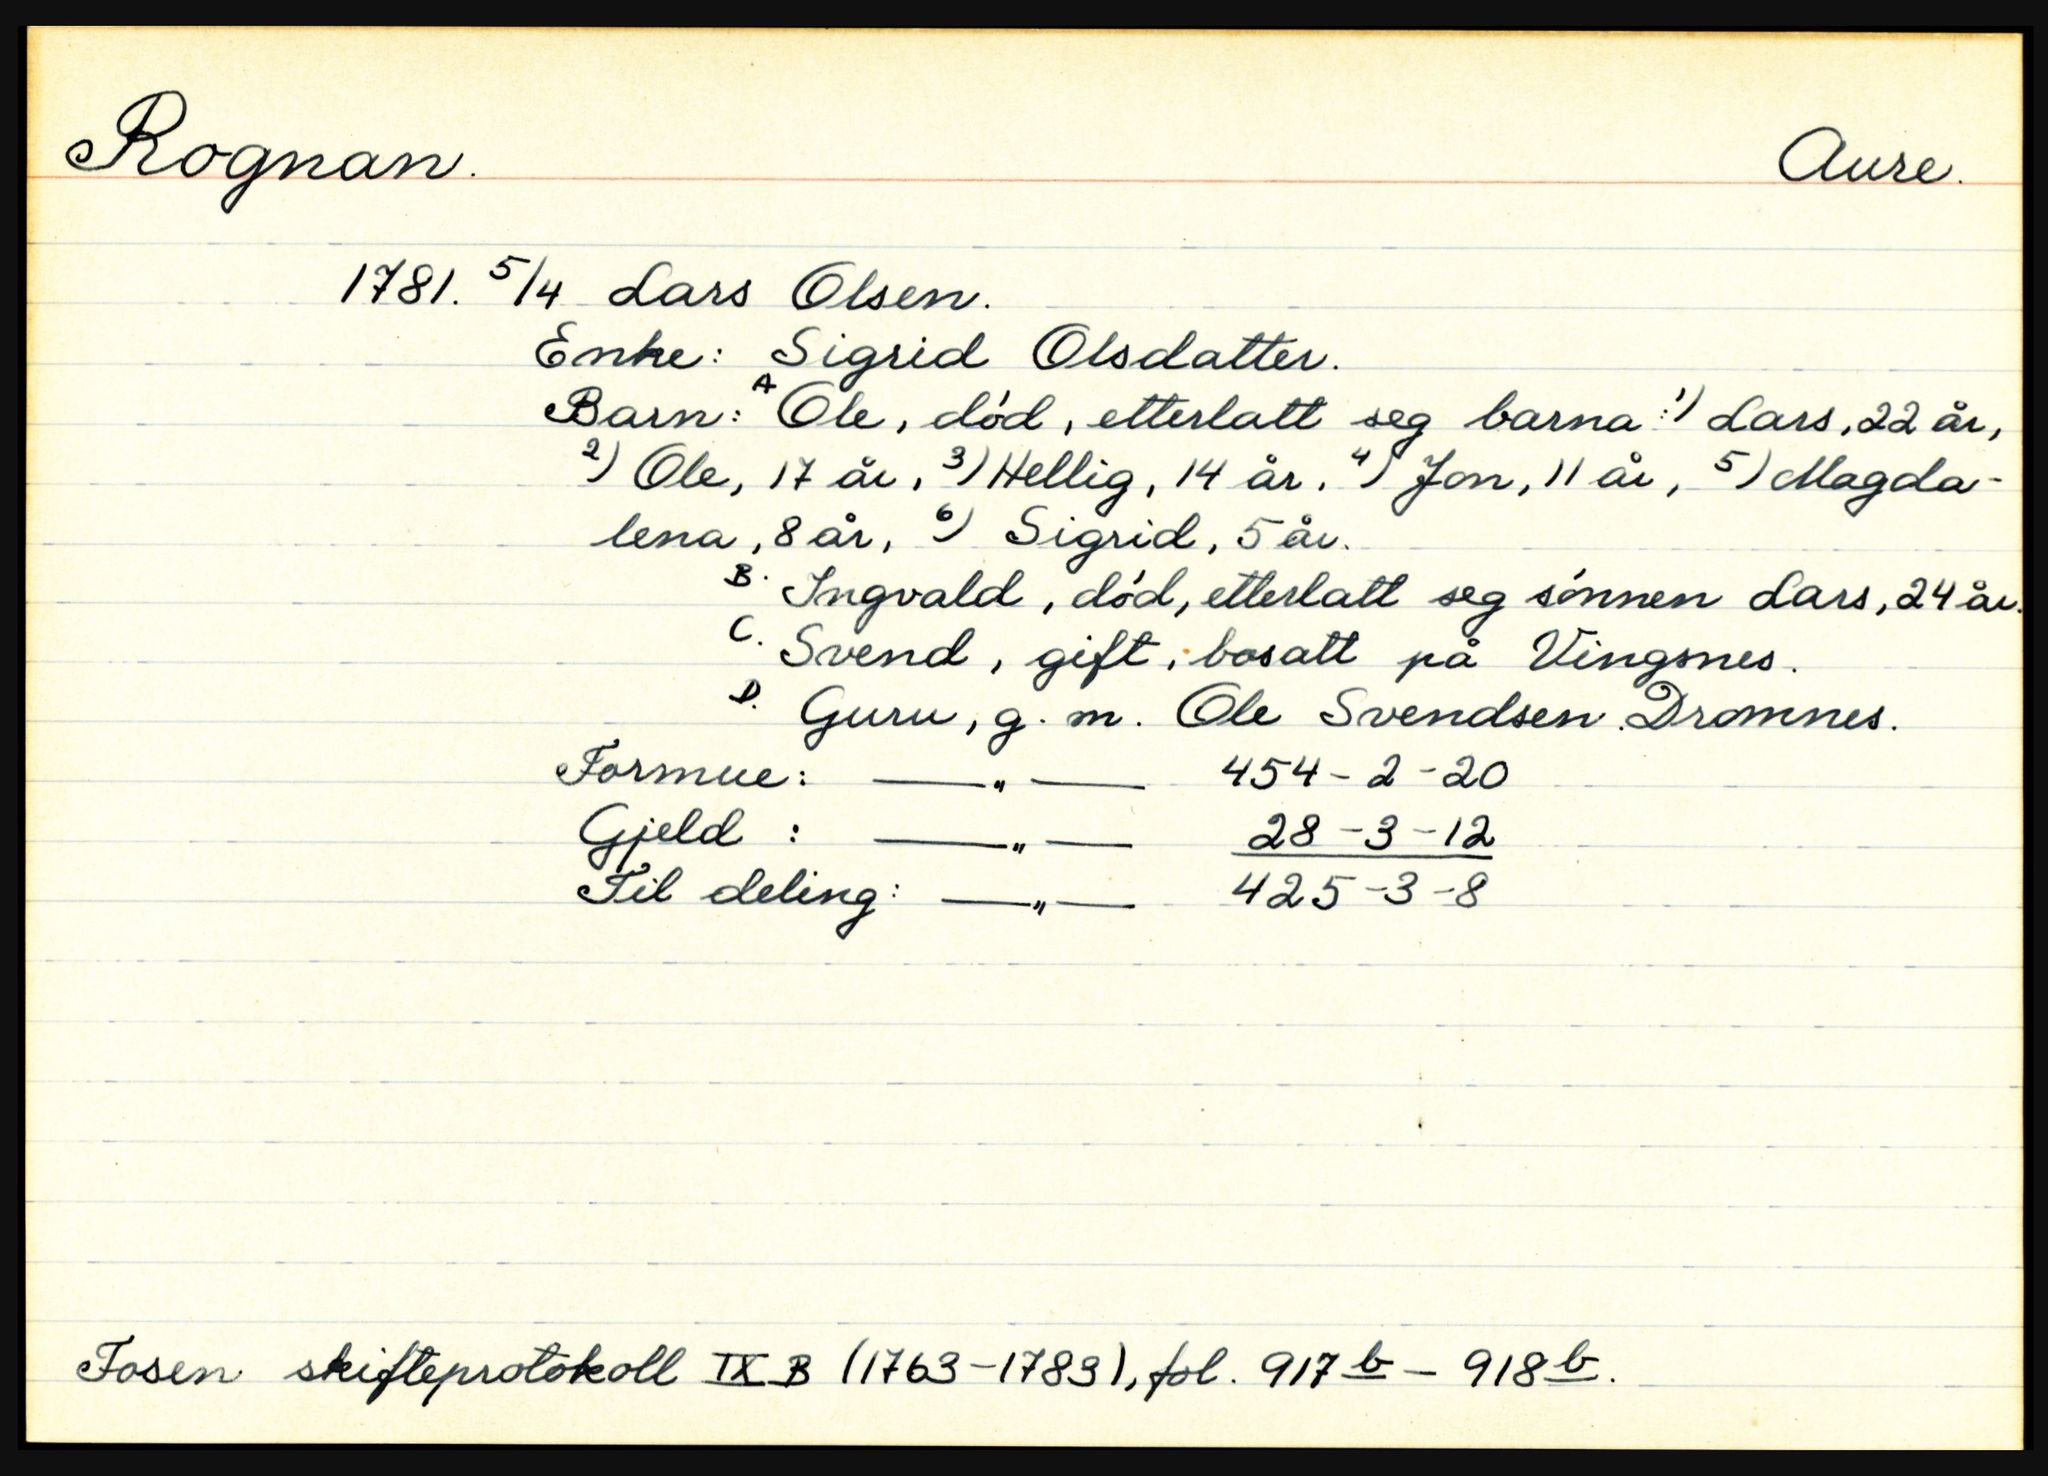 Rognan. Aure.
1781. 5/4 Lars Olsen.
Enke: Sigrid Olsdatter.
Barn: A Ole, død, etterlatt seg barna: 1) Lars, 22 år,
2) Ole, 17 år, 3) Hellig, 14 år, 4) Jon, 11 år, 5) Magda-
lena, 8 år, 6) Sigrid, 5 år.
B. Ingvald, død, etterlatt seg sønnen Lars, 24 år.
C. Svend, gift, bosatt på Vingsnes.
D. Guru, g. m. Ole Svendsen Dromnes.
Formue: —"— 454-2-20
Gjeld : —"— 28-3-12
Til deling: —"— 425-3-8
Fosen skifteprotokoll IX B (1763-1783), fol. 917 b - 918 b.